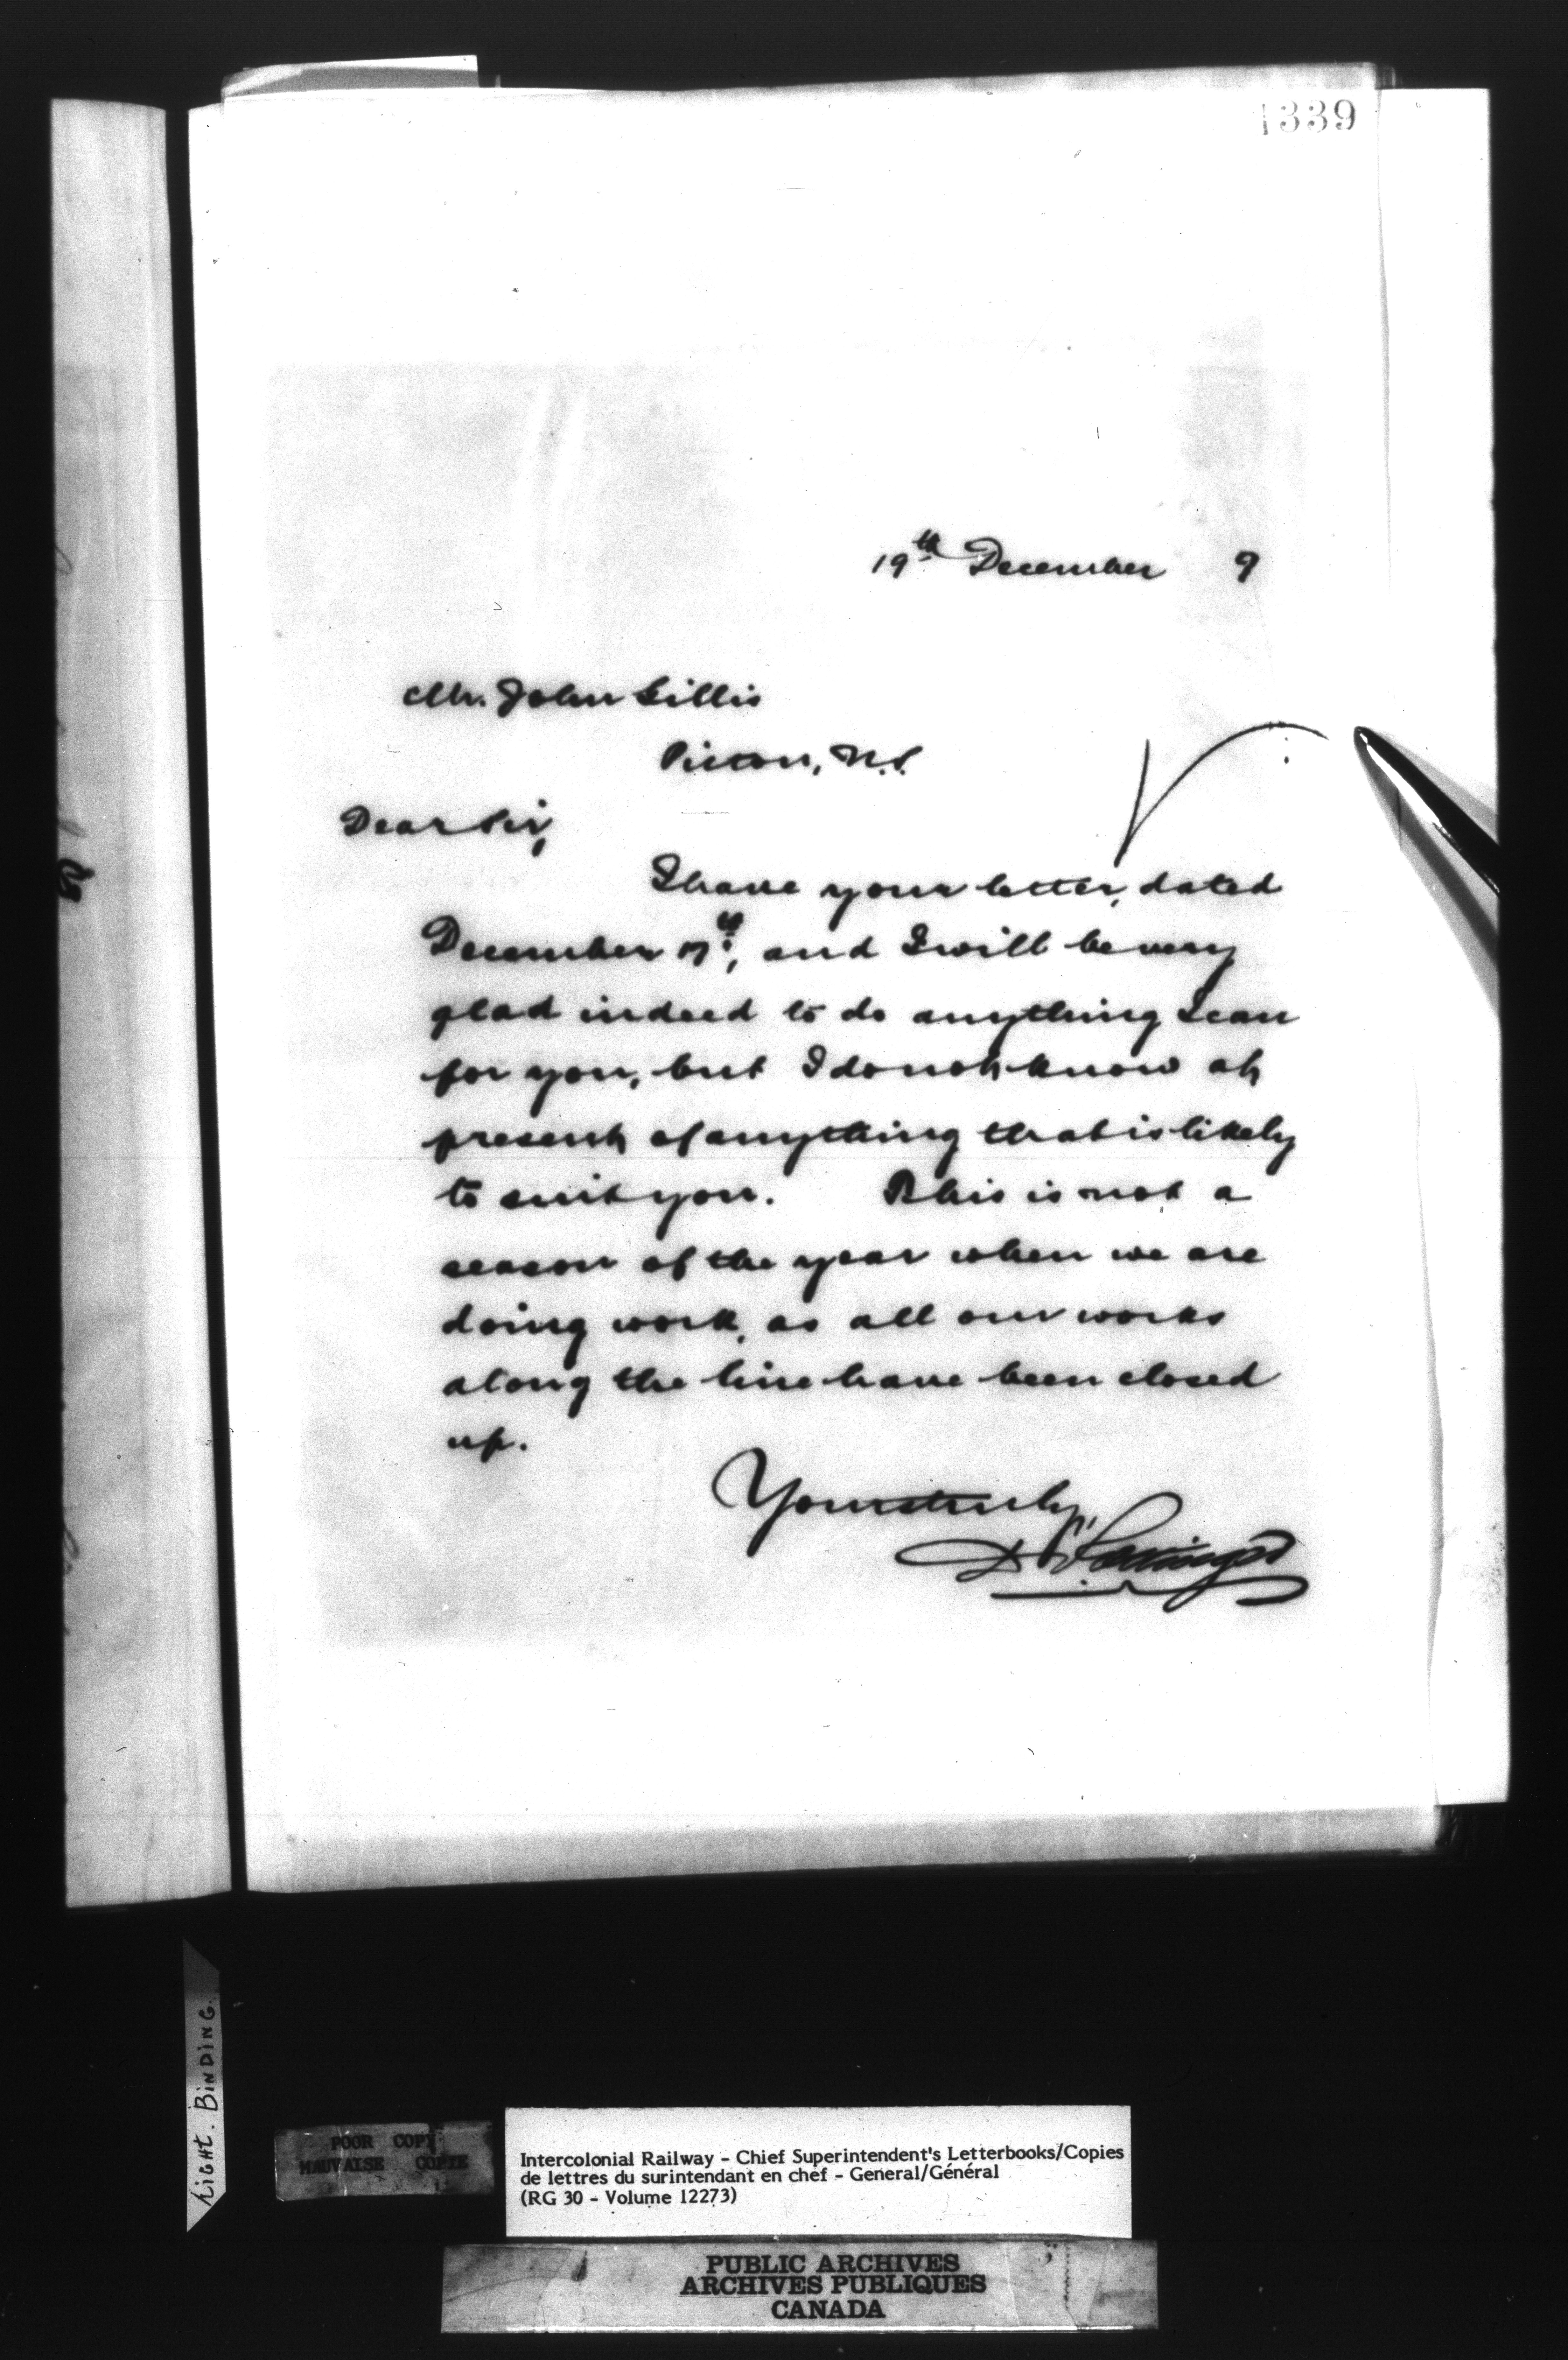 1339
19th December 9
Mr. John Gillis
Pictou, N.S.
Dear Sir,
I have your letter, dated
December 17th, and I will be very
glad indeed to do anything I can
for you, but I do not know at
present of anything that is likely
to suit you. This is not a
season of the year when we are
doing work, as all our works
along the line have been closed
up.
Yours truly,
D Pottinger
LIGHT. BINDING.
POOR COPY
MAUVAISE COPIE
Intercolonial Railway - Chief Superintendent's Letterbooks/Copies
de lettres du surintendant en chef - General/Général
(RG 30 - Volume 12273)
PUBLIC ARCHIVES
ARCHIVES PUBLIQUES
CANADA